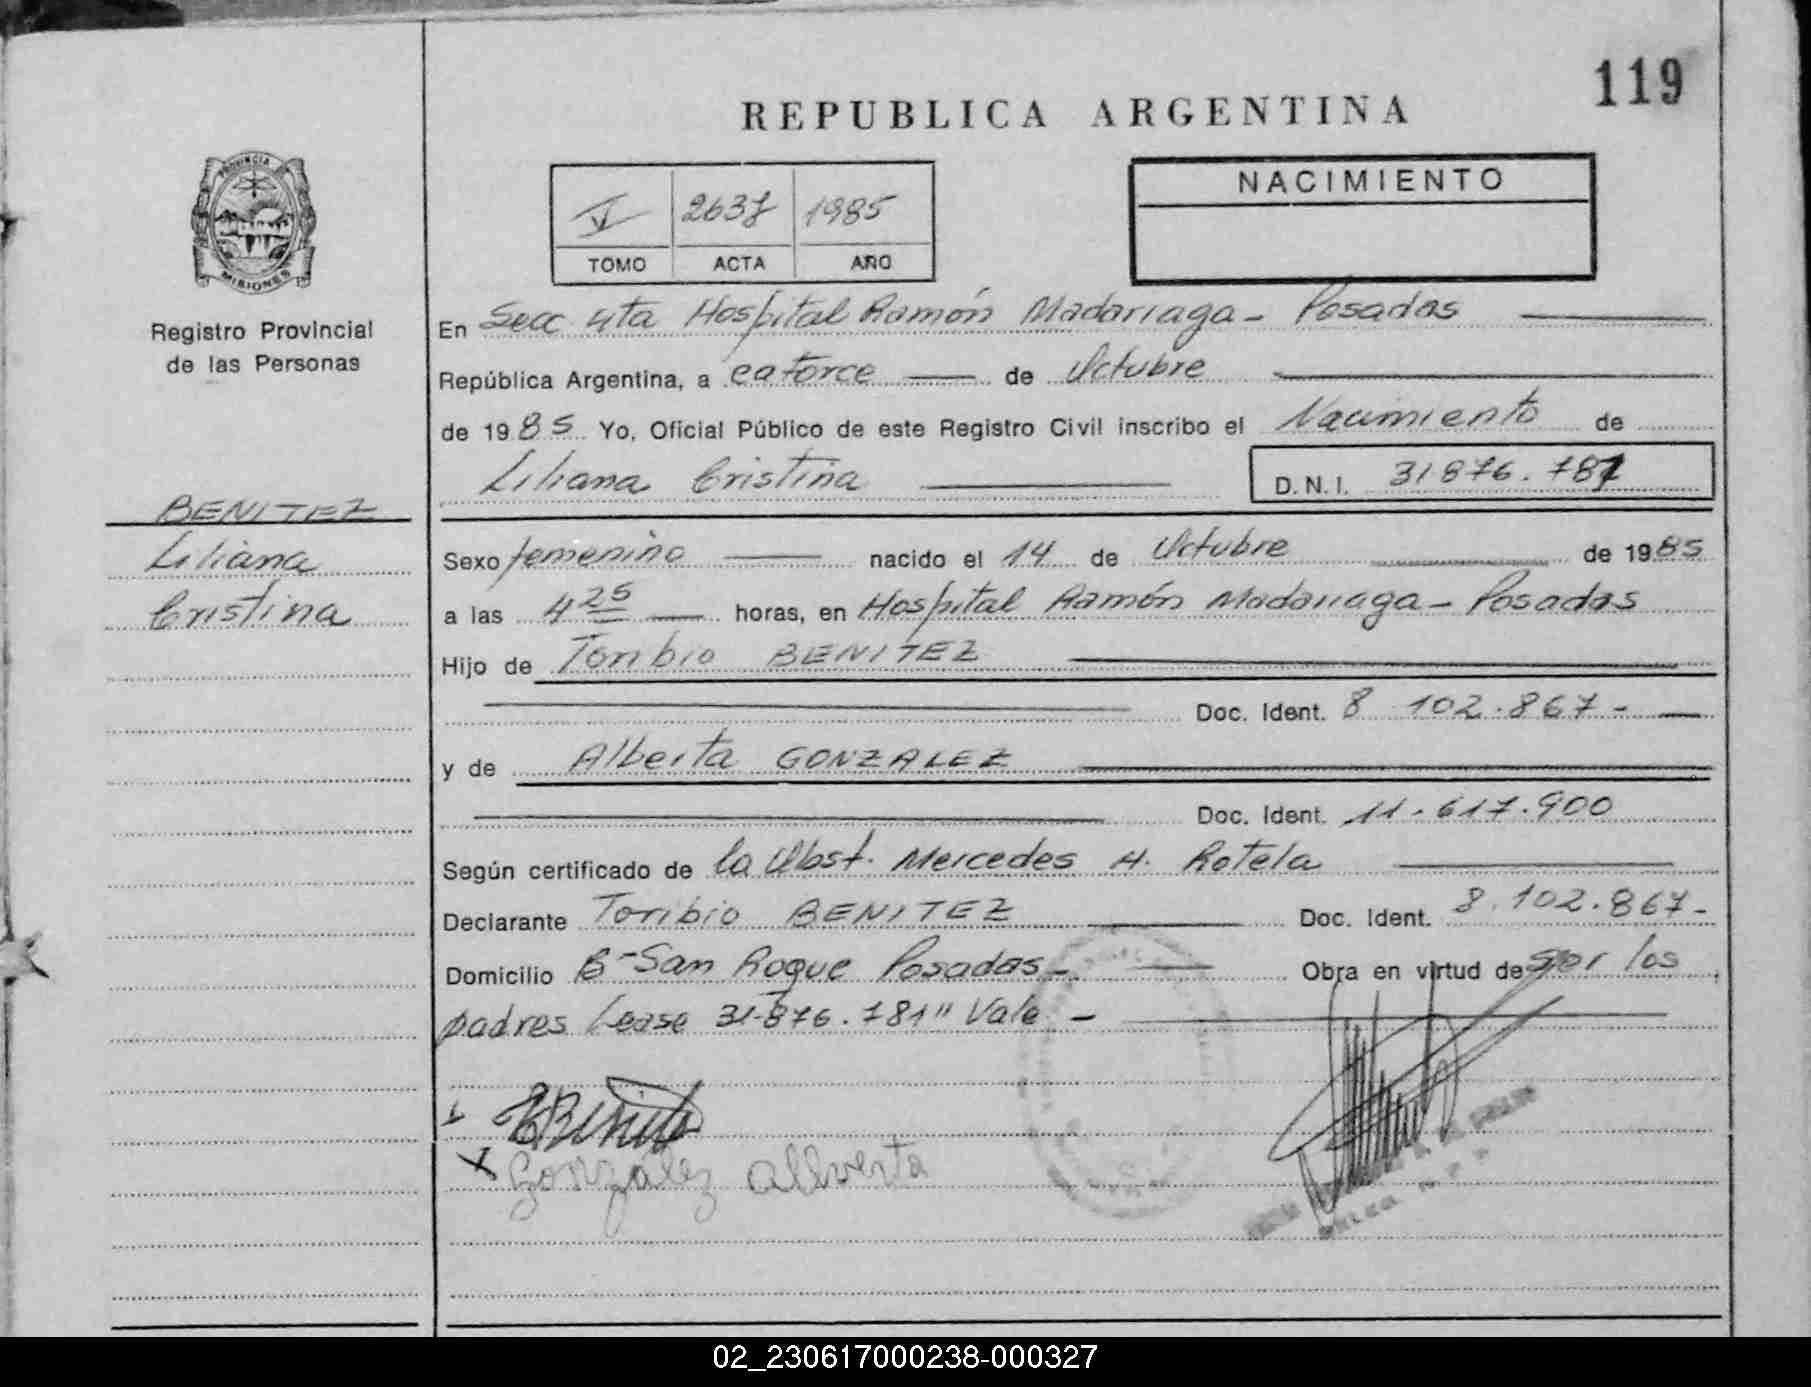 119
REPUBLICA ARGENTINA
PROVINCIA DE
MISIONES
Registro Provincial
de las Personas
V 2637 1985
TOMO ACTA AÑO
NACIMIENTO
En Secc 4ta Hospital Ramón Madariaga - Posadas
República Argentina, a catorce de Octubre
de 1985 Yo, Oficial Público de este Registro Civil inscribo el Nacimiento de
Liliana Cristina D.N.I. 31 876.781
BENITEZ
Liliana
Cristina
Sexo femenino nacido el 14 de Octubre de 1985
a las 4 25 horas, en Hospital Ramón Madariaga - Posadas
Hijo de Toribio BENITEZ
Doc. Ident. 8 102.867-
y de Alberta GONZALEZ
Doc. Ident. 11.617.900
Según certificado de la Obst. Mercedes H. Rotela
Declarante Toribio BENITEZ Doc. Ident. 8.102.867-
Domicilio B- San Roque Posadas - Obra en virtud de ser los
padres Lease 31-876.781" Vale -
x TBenitez
x Gonzalez allverta
02_230617000238-000327